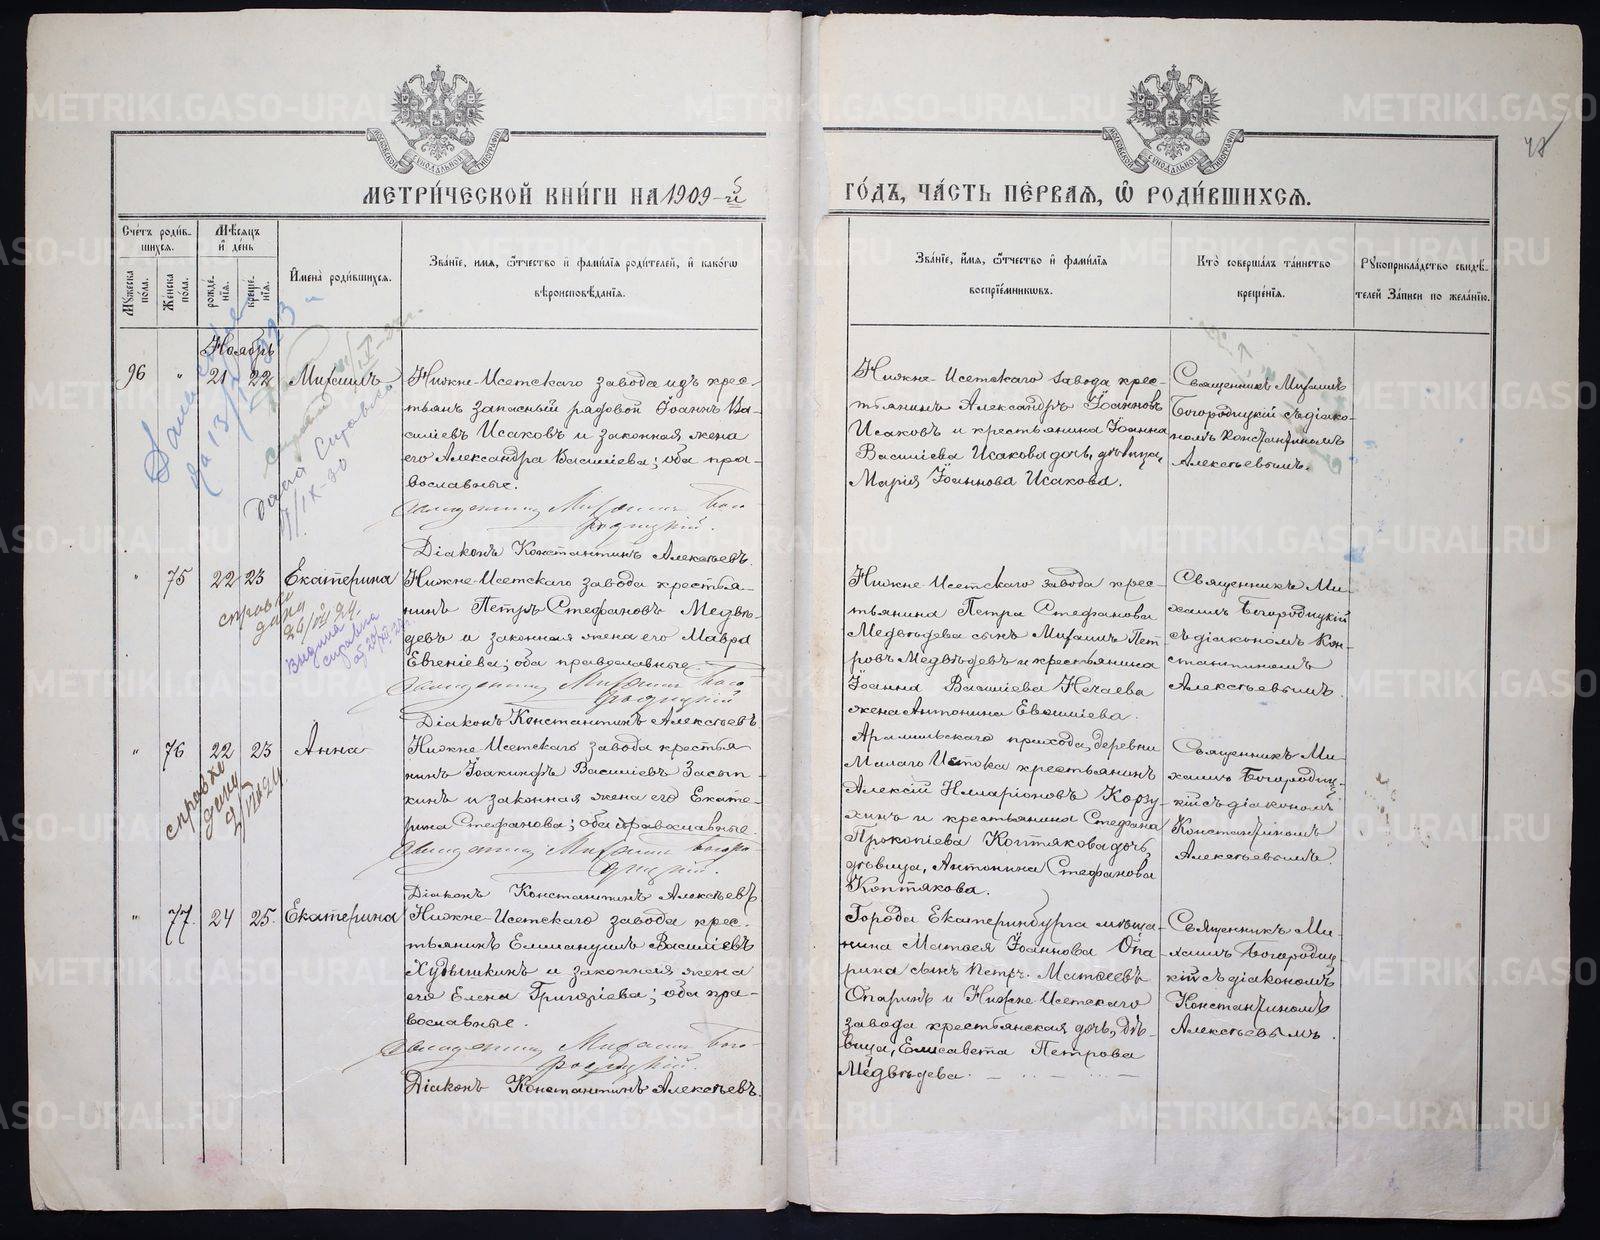 МЕТРИ́ЧЕСКОЙ КНИ́ГИ НА 1909-й
ГО́ДЪ, ЧА́СТЬ ПЕ́РВАЯ, Ѡ҆ РОДИ́ВШИХСЯ.
Сче́тъ роди́в-
шихся.
Му́жеска по́ла.
Же́нска по́ла.
Мѣ́сяцъ и҆ де́нь
рожде́нїя.
креще́нїя.
И҆мена̀ роди́вшихся.
Зва́нїе, имя, ѻ҆́тчество и҆ фами́лїя роди́телей, и҆ како́гѡ
вѣроисповѣ́данїя.
Зва́нїе, и҆́мя, ѻ҆́тчество и҆ фами́лїя
воспрїе́мникѡвъ.
Кто̀ соверша́лъ та́инство
креще́нїя.
Рꙋкоприкла́дство свидѣ́-
телей За́писи по жела́нїю.
Ноябрь
96 " 21 22 Михаилъ
Нижне-Исетскаго завода изъ крес-
тьянъ запасный рядовой Іоаннъ Ва-
силіевъ Исаковъ и законная жена
его Александра Василіева; оба пра-
вославные.
Священникъ Михаилъ Бого-
родицкій.
Діаконъ Константинъ Алексѣевъ.
Нижне-Исетскаго завода крес-
тьянинъ Александръ Іоанновъ
Исаковъ и крестьянина Іоанна
Василіева Исакова дочь, дѣвица,
Марія Іоаннова Исакова.
Священникъ Михаилъ
Богородицкій съ діако-
номъ Константиномъ
Алексѣевымъ.
дана справка
" 75 22 23 Екатерина
Нижне-Исетскаго завода крестья-
нинъ Петръ Стефановъ Медвѣ-
девъ и законная жена его Мавра
Евгеніева; оба православные
Священникъ Михаилъ Бого-
родицкій
Діаконъ Константинъ Алексѣевъ
Нижне-Исетскаго завода крес-
тьянина Петра Стефанова
Медвѣдева сынъ Михаилъ Пет-
ровъ Медвѣдевъ и крестьянина
Іоанна Василіева Нечаева
жена Антонина Евѳиміева.
Священникъ Ми-
хаилъ Богородицкій
съ діакономъ Кон-
стантиномъ
Алексѣевымъ.
справка
дана
Выдана
справка
" 76 22 23 Анна
Нижне Исетскаго завода крестья
нинъ Іоакинфъ Василіевъ Засып-
кинъ и законная жена его Екате-
рина Стефанова; оба православные.
Священникъ Михаилъ Богоро-
дицкій.
Діаконъ Константинъ Алексѣевъ
Арамильскаго прихода, деревни
Малаго Истока крестьянинъ
Алексій Илларіоновъ Корзу-
хинъ и крестьянина Стефана
Прокопіева Коптякова дочь,
дѣвица, Антонина Стефанова
Коптякова.
Священникъ Ми-
хаилъ Богородиц-
кій съ діакономъ
Константиномъ
Алексѣевымъ.
справка
дана
" 77. 24 25. Екатерина
Нижне-Исетскаго завода крес-
тьянинъ Еммануилъ Василіевъ
Худышкинъ и законная жена
его Елена Григоріева; оба пра-
вославные.
Священникъ Михаилъ Бого-
родицкій.
Діаконъ Константинъ Алексѣевъ.
Города Екатеринбурга мѣща-
нина Матѳея Іоаннова Опа-
рина сынъ Петръ Матѳеевъ
Опаринъ и Нижне Исетскаго
завода крестьянская дочь, дѣ-
вица, Елисавета Петрова
Медвѣдева.
Священникъ Ми-
хаилъ Богородиц-
кій съ діакономъ
Константиномъ
Алексѣевымъ.
METRIKI.GASO-URAL.RU